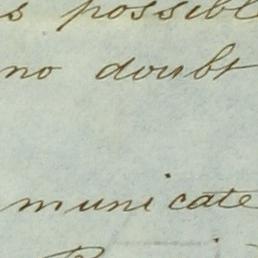 s possible
no doubt
municate